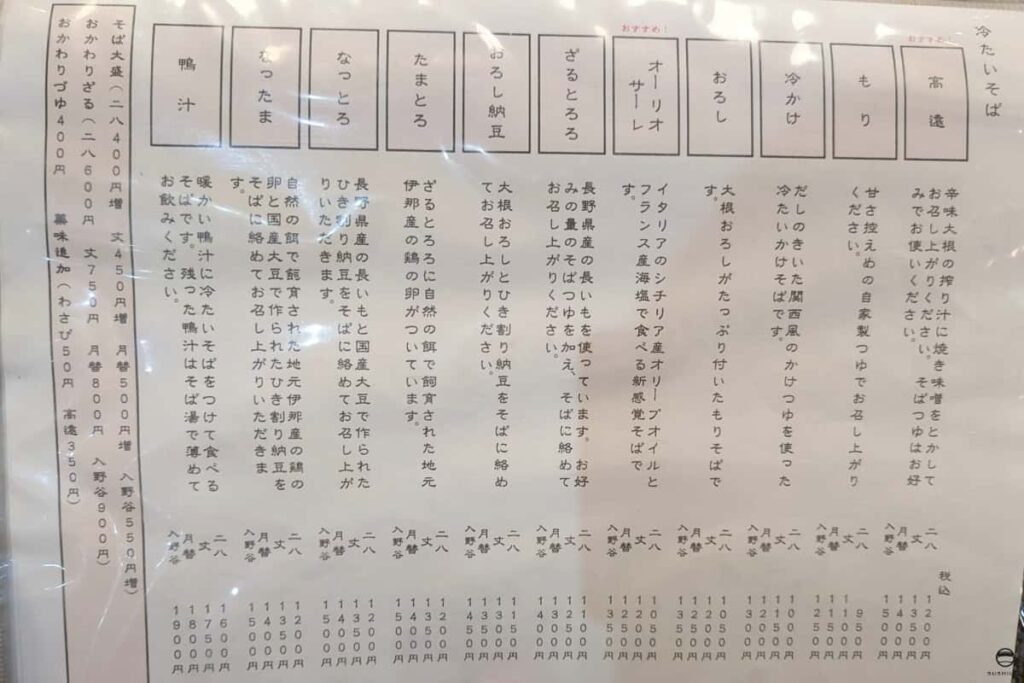 冷たいそば
税込
おすすめ!
高遠
辛味大根の搾り汁に焼き味噌をとかして
お召し上がりください。そばつゆはお好
みでお使いください。
二八 1200円
丈 1350円
月替 1400円
入野谷 1500円
もり
甘さ控えめの自家製つゆでお召し上がり
ください。
二八 950円
丈 1100円
月替 1150円
入野谷 1250円
冷かけ
だしのきいた関西風のかけつゆを使った
冷たいかけそばです。
二八 1000円
丈 1150円
月替 1200円
入野谷 1300円
おろし
大根おろしがたっぷり付いたもりそばで
す。
二八 1050円
丈 1200円
月替 1250円
入野谷 1350円
おすすめ!
オーリオ
サーレ
イタリアのシチリア産オリーブオイルと
フランス産海塩で食べる新感覚そばで
す。
二八 1050円
丈 1200円
月替 1250円
入野谷 1350円
ざるとろろ
長野県産の長いもを使っています。お好
みの量のそばつゆを加え、そばに絡めて
お召し上がりください。
二八 1100円
丈 1250円
月替 1300円
入野谷 1400円
おろし納豆
大根おろしとひき割り納豆をそばに絡め
てお召し上がりください。
二八 1150円
丈 1300円
月替 1350円
入野谷 1450円
たまとろ
ざるとろろに自然の餌で飼育された地元
伊那産の鶏の卵がついています。
二八 1200円
丈 1350円
月替 1400円
入野谷 1500円
なっとろ
長野県産の長いもと国産大豆で作られた
ひき割り納豆をそばに絡めてお召し上が
りいただきます。
二八 1200円
丈 1350円
月替 1400円
入野谷 1500円
なったま
自然の餌で飼育された地元伊那産の鶏の
卵と国産大豆で作られたひき割り納豆を
そばに絡めてお召し上がりいただきま
す。
二八 1200円
丈 1350円
月替 1400円
入野谷 1500円
鴨汁
暖かい鴨汁に冷たいそばをつけて食べる
そばです。残った鴨汁はそば湯で薄めて
お飲みください。
二八 1600円
丈 1750円
月替 1800円
入野谷 1900円
そば大盛(二八400円増 丈450円増 月替500円増 入野谷550円増)
おかわりざる(二八600円 丈750円 月替800円 入野谷900円)
おかわりづゆ400円 薬味追加(わさび50円 高遠350円)